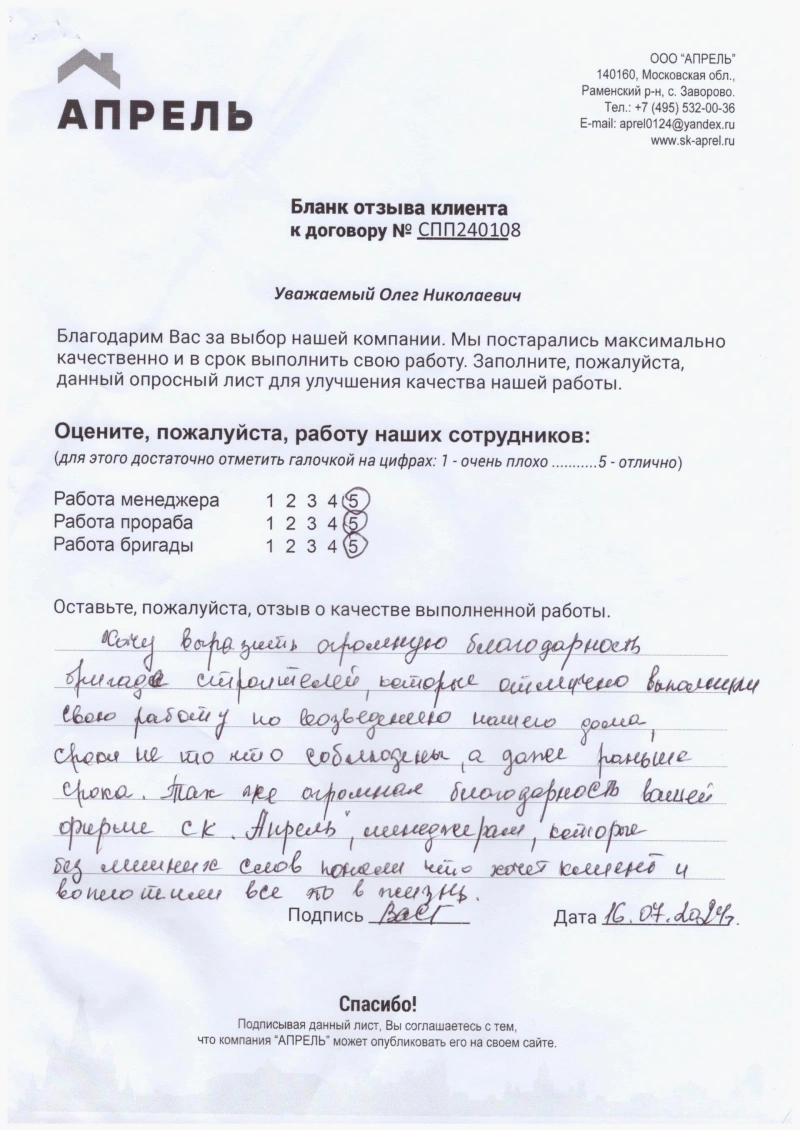 АПРЕЛЬ
ООО "АПРЕЛЬ"
140160, Московская обл.,
Раменский р-н, с. Заворово.
Тел.: +7 (495) 532-00-36
E-mail: aprel0124@yandex.ru
www.sk-aprel.ru
Бланк отзыва клиента
к договору № СПП240108
Уважаемый Олег Николаевич
Благодарим Вас за выбор нашей компании. Мы постарались максимально
качественно и в срок выполнить свою работу. Заполните, пожалуйста,
данный опросный лист для улучшения качества нашей работы.
Оцените, пожалуйста, работу наших сотрудников:
(для этого достаточно отметить галочкой на цифрах: 1 - очень плохо ...........5 - отлично)
Работа менеджера 1 2 3 4 5
Работа прораба 1 2 3 4 5
Работа бригады 1 2 3 4 5
Оставьте, пожалуйста, отзыв о качестве выполненной работы.
Хочу выразить огромную благодарность
бригаде строителей, которые отлично выполнили
свою работу по возведению нашего дома,
сроки не то что соблюдены, а даже раньше
срока. Так же огромная благодарность вашей
фирме СК "Апрель", менеджерам, которые
без лишних слов поняли что хочет клиент и
воплотили все это в жизнь.
Подпись
Дата 16.07.2024г.
Спасибо!
Подписывая данный лист, Вы соглашаетесь с тем,
что компания "АПРЕЛЬ" может опубликовать его на своем сайте.